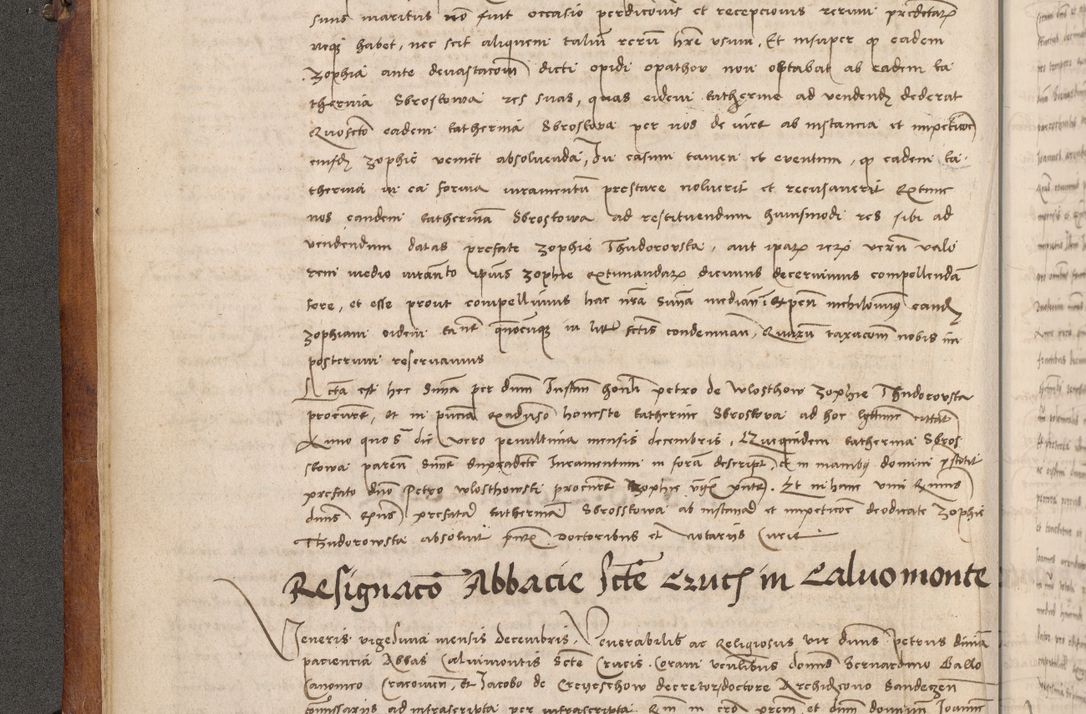 suus maritus nō fuit occasio perdicionis et recepcionis rerum predictarꝫ
neqꝫ habet, nec scit aliquem talium rerū hr̄e usum, Et insuper ꝙ eadem
Zophia ante devastacōem dicti opidi opathow non optabat ab eadem ka
therina Sbroskowa res suas, quas eidem katherine ad vendendꝫ dederat
Quo fctō eadem katherina Sbroskowa per nos de iure ab instancia et impeticōe
eiusdꝫ Zophie veniet absolvenda, In casum tamen et eventum, ꝙ eadem ka
therina in ea forma iuramentū prestare noluerit et recusaverit Extunc
nos eandem katherinā Sbroskowa ad restituendum huiusmodi res sibi ad
vendendum datas prefate Zophie Thudorowska, aut iparꝫ rerꝫ verū valo
rem medio iuramēto ipīus Zophie extimandarꝫ dicimus decernimus compellendā
fore, et esse prout compellimus hac nr̄a sn̄ia mediante
Zophiam eidem in litē fctis condemnan̄, Quarū taxacōem nobis im
posterum reservamus
Lcta est hec sn̄ia per dn̄m petro de Wlosthow Zophie Thudorowska
procure, et in pn̄cia honeste katherine Sbroskowa ad hoc
Anno quo sͣ die vero penultima mensis decembris, Quiquidem katherina Sbros
kowa paren̄ sn̄ie Iuramentum in forā descriptꝫ in manibꝫ domini prestitit
prefato dn̄o Petro wlosthowski procure Zophie Et in hanc
dn̄us prefatā katherinā Sbrosskowa ab instancia et impeticōe dicte Zophie
Thudorowska absolvit pn̄tꝫ doctoribus et notariis Curie
Resignacō Abbacie Scte Crucꝭ in Calvomonte
Veneris vigesima mensis decembris. Venerabilis ac Religiosus vir dn̄us Petrus divina
paciencia Abbas Calvimontis Scte Crucis. Coram venlibus domīs Bernardino Gallo
Canonico Cracovien̄, Et Jacobo de decretorꝫ doctore Archidcono Sandecen̄
Comissariis ad infrascripta per infrascripta et dn̄m dominum Joannē